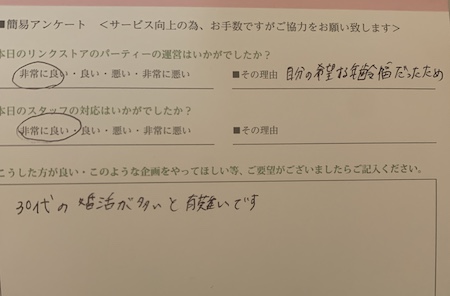 ■簡易アンケート <サービス向上の為、お手数ですがご協力をお願い致します>
本日のリンクストアのパーティーの運営はいかがでしたか?
非常に良い・良い・悪い・非常に悪い ■その理由 自分の希望する年齢幅だったため
本日のスタッフの対応はいかがでしたか?
非常に良い・良い・悪い・非常に悪い ■その理由
こうした方が良い・このような企画をやってほしい等、ご要望がございましたらご記入ください。
30代の婚活が多いと有難いです